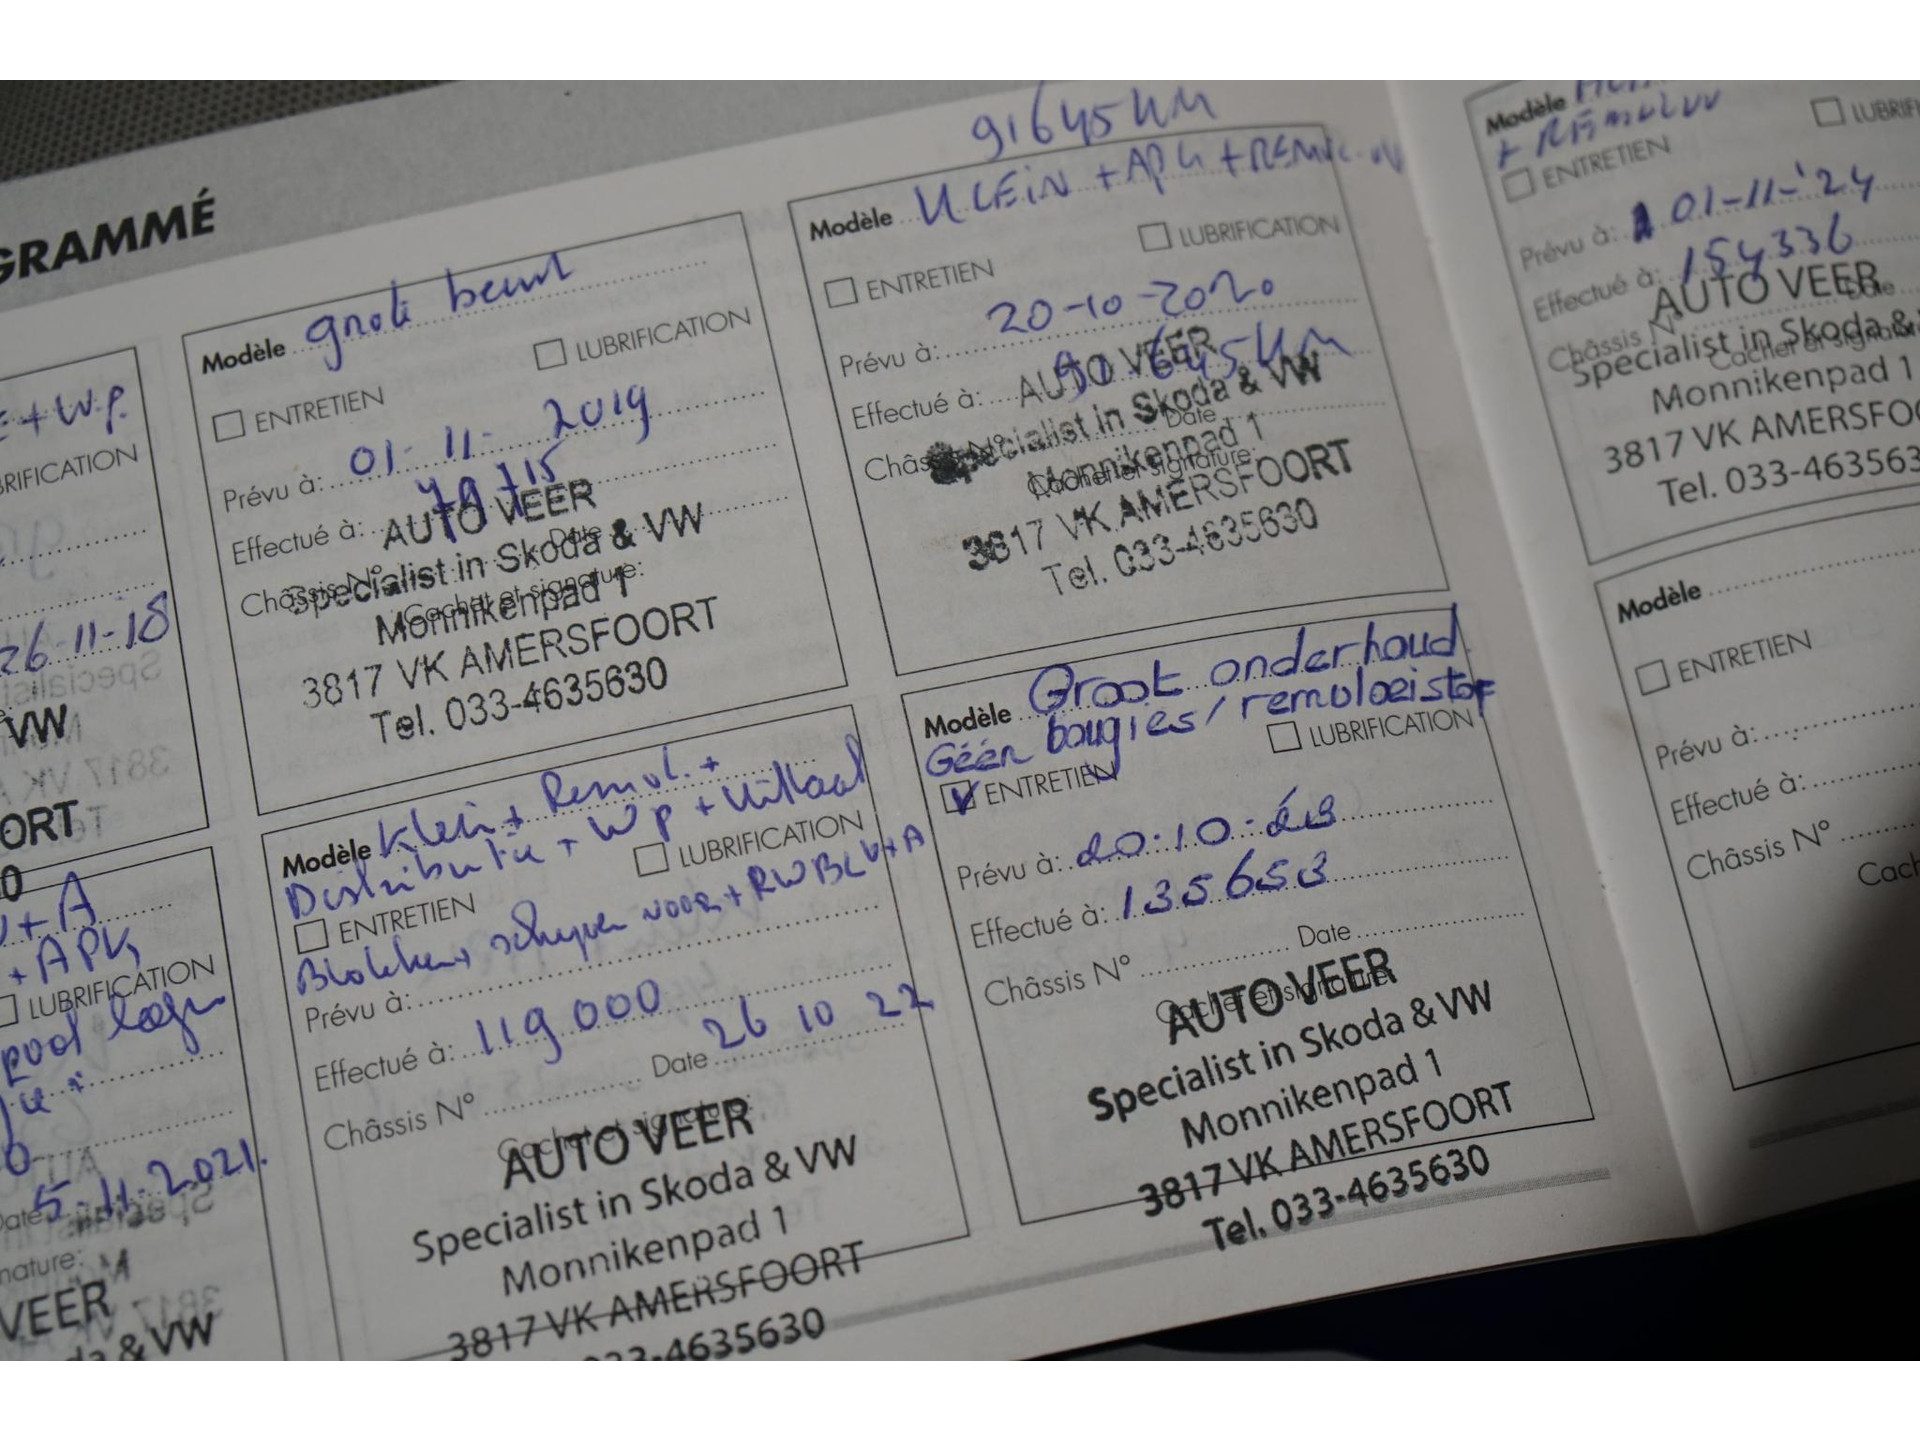 GRAMMÉ
+ W.p.
26-11-18
VW
ORT
Modèle grote beurt
LUBRIFICATION
ENTRETIEN
Prévu à: 01-11-2019
Effectué à:
Date
Châssis N°
Cachet et signature:
AUTO VEER
Specialist in Skoda & VW
Monnikenpad 1
3817 VK AMERSFOORT
Tel. 033-4635630
91645 KM
Modèle KLEIN + APK +
LUBRIFICATION
ENTRETIEN
Prévu à: 20-10-2020
Effectué à: 91645 KM
Date
Cachet et signature:
AUTO VEER
Specialist in Skoda & VW
Monnikenpad 1
3817 VK AMERSFOORT
Tel. 033-4635630
Modèle
LUBRIFICATION
ENTRETIEN
Prévu à: 01-11-'24
Effectué à: 154336
Châssis N°
Date
AUTO VEER
Specialist in Skoda &
Monnikenpad 1
3817 VK AMERSFOO
Tel. 033-463563
+ A
+ APK
LUBRIFICATION
5-11-2021.
VEER
& VW
Modèle Klein + Remvl. +
Distributie + Wp + Multiriem
LUBRIFICATION
ENTRETIEN
Blokken + schijven voor + RWBL V+A
Prévu à:
Effectué à: 119000
Châssis N° Date 26 10 22
Cachet et signature:
AUTO VEER
Specialist in Skoda & VW
Monnikenpad 1
3817 VK AMERSFOORT
033-4635630
Modèle Groot onderhoud
Géén bougies/remvloeistof
LUBRIFICATION
ENTRETIEN
Prévu à: 20-10-23
Effectué à: 135653
Châssis N° Date
Cachet et signature:
AUTO VEER
Specialist in Skoda & VW
Monnikenpad 1
3817 VK AMERSFOORT
Tel. 033-4635630
Modèle
ENTRETIEN
Prévu à:
Effectué à:
Châssis N°
Cach